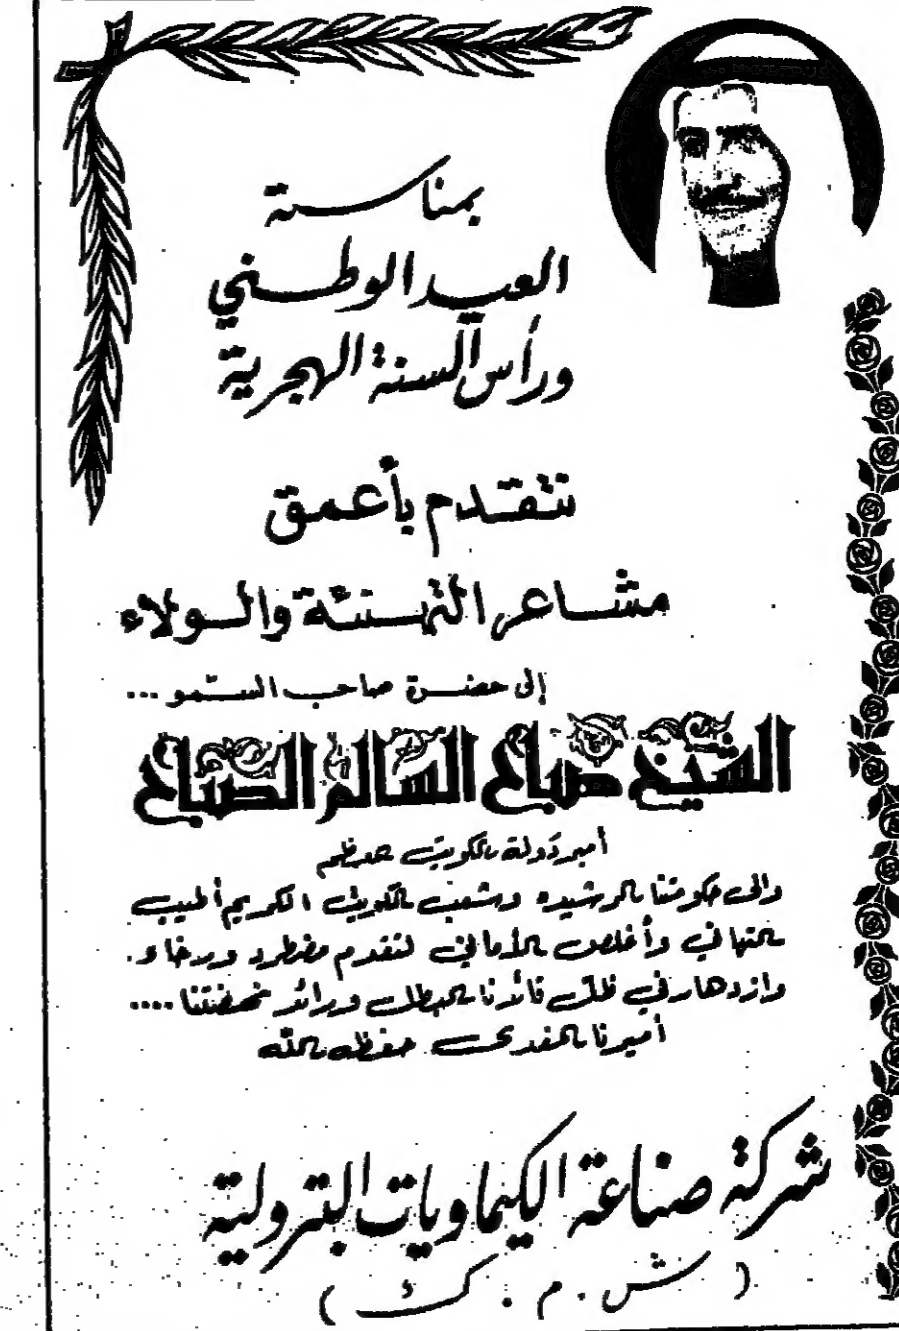 بمناسبة
العيد الوطني
ورأس السنة الهجرية
نتقدم بأعمق
مشاعر التهنئة والولاء
إلى حضرة صاحب السمو ...
الشيخ صباح السالم الصباح
أمير دولة الكويت المعظم
والى حكومتنا الرشيدة وشعب الكويت الكريم أطيب
التهاني وأخلص الأماني لتقدم مضطرد ورخاء .
وازدهار في ظل قائدنا البطل ورائد نهضتنا ....
أميرنا المفدى حفظه الله
شركة صناعة الكيماويات البترولية
( ش . م . ك )